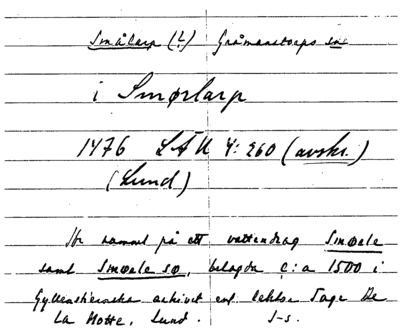 Smålarp (?) Gråmanstorps sn
i Smørlarp
1476 LÄU 4:260 (avskr.)
(Lund)
Jfr namnet på ett vattendrag Smøale
samt Smøale sø, belagda c:a 1500 i
Gyllenstiernska arkivet enl. lektor Tage De
La Motte, Lund. I-S.